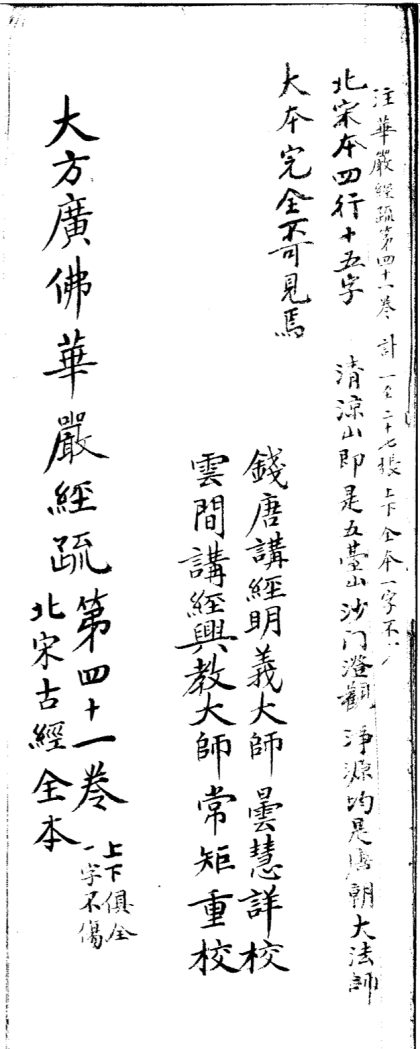 注華嚴經疏第四十一卷 計一至二十七張上下全本一字不
北宋本四行十五字 清涼山即是五臺山沙门澄觀淨源均是唐朝大法師
大本完全不可見焉
錢唐講經明義大師曇慧詳校
雲間講經興教大師常矩重校
大方廣佛華嚴經疏第四十一卷
北宋古經全本
上下俱全
一字不傷